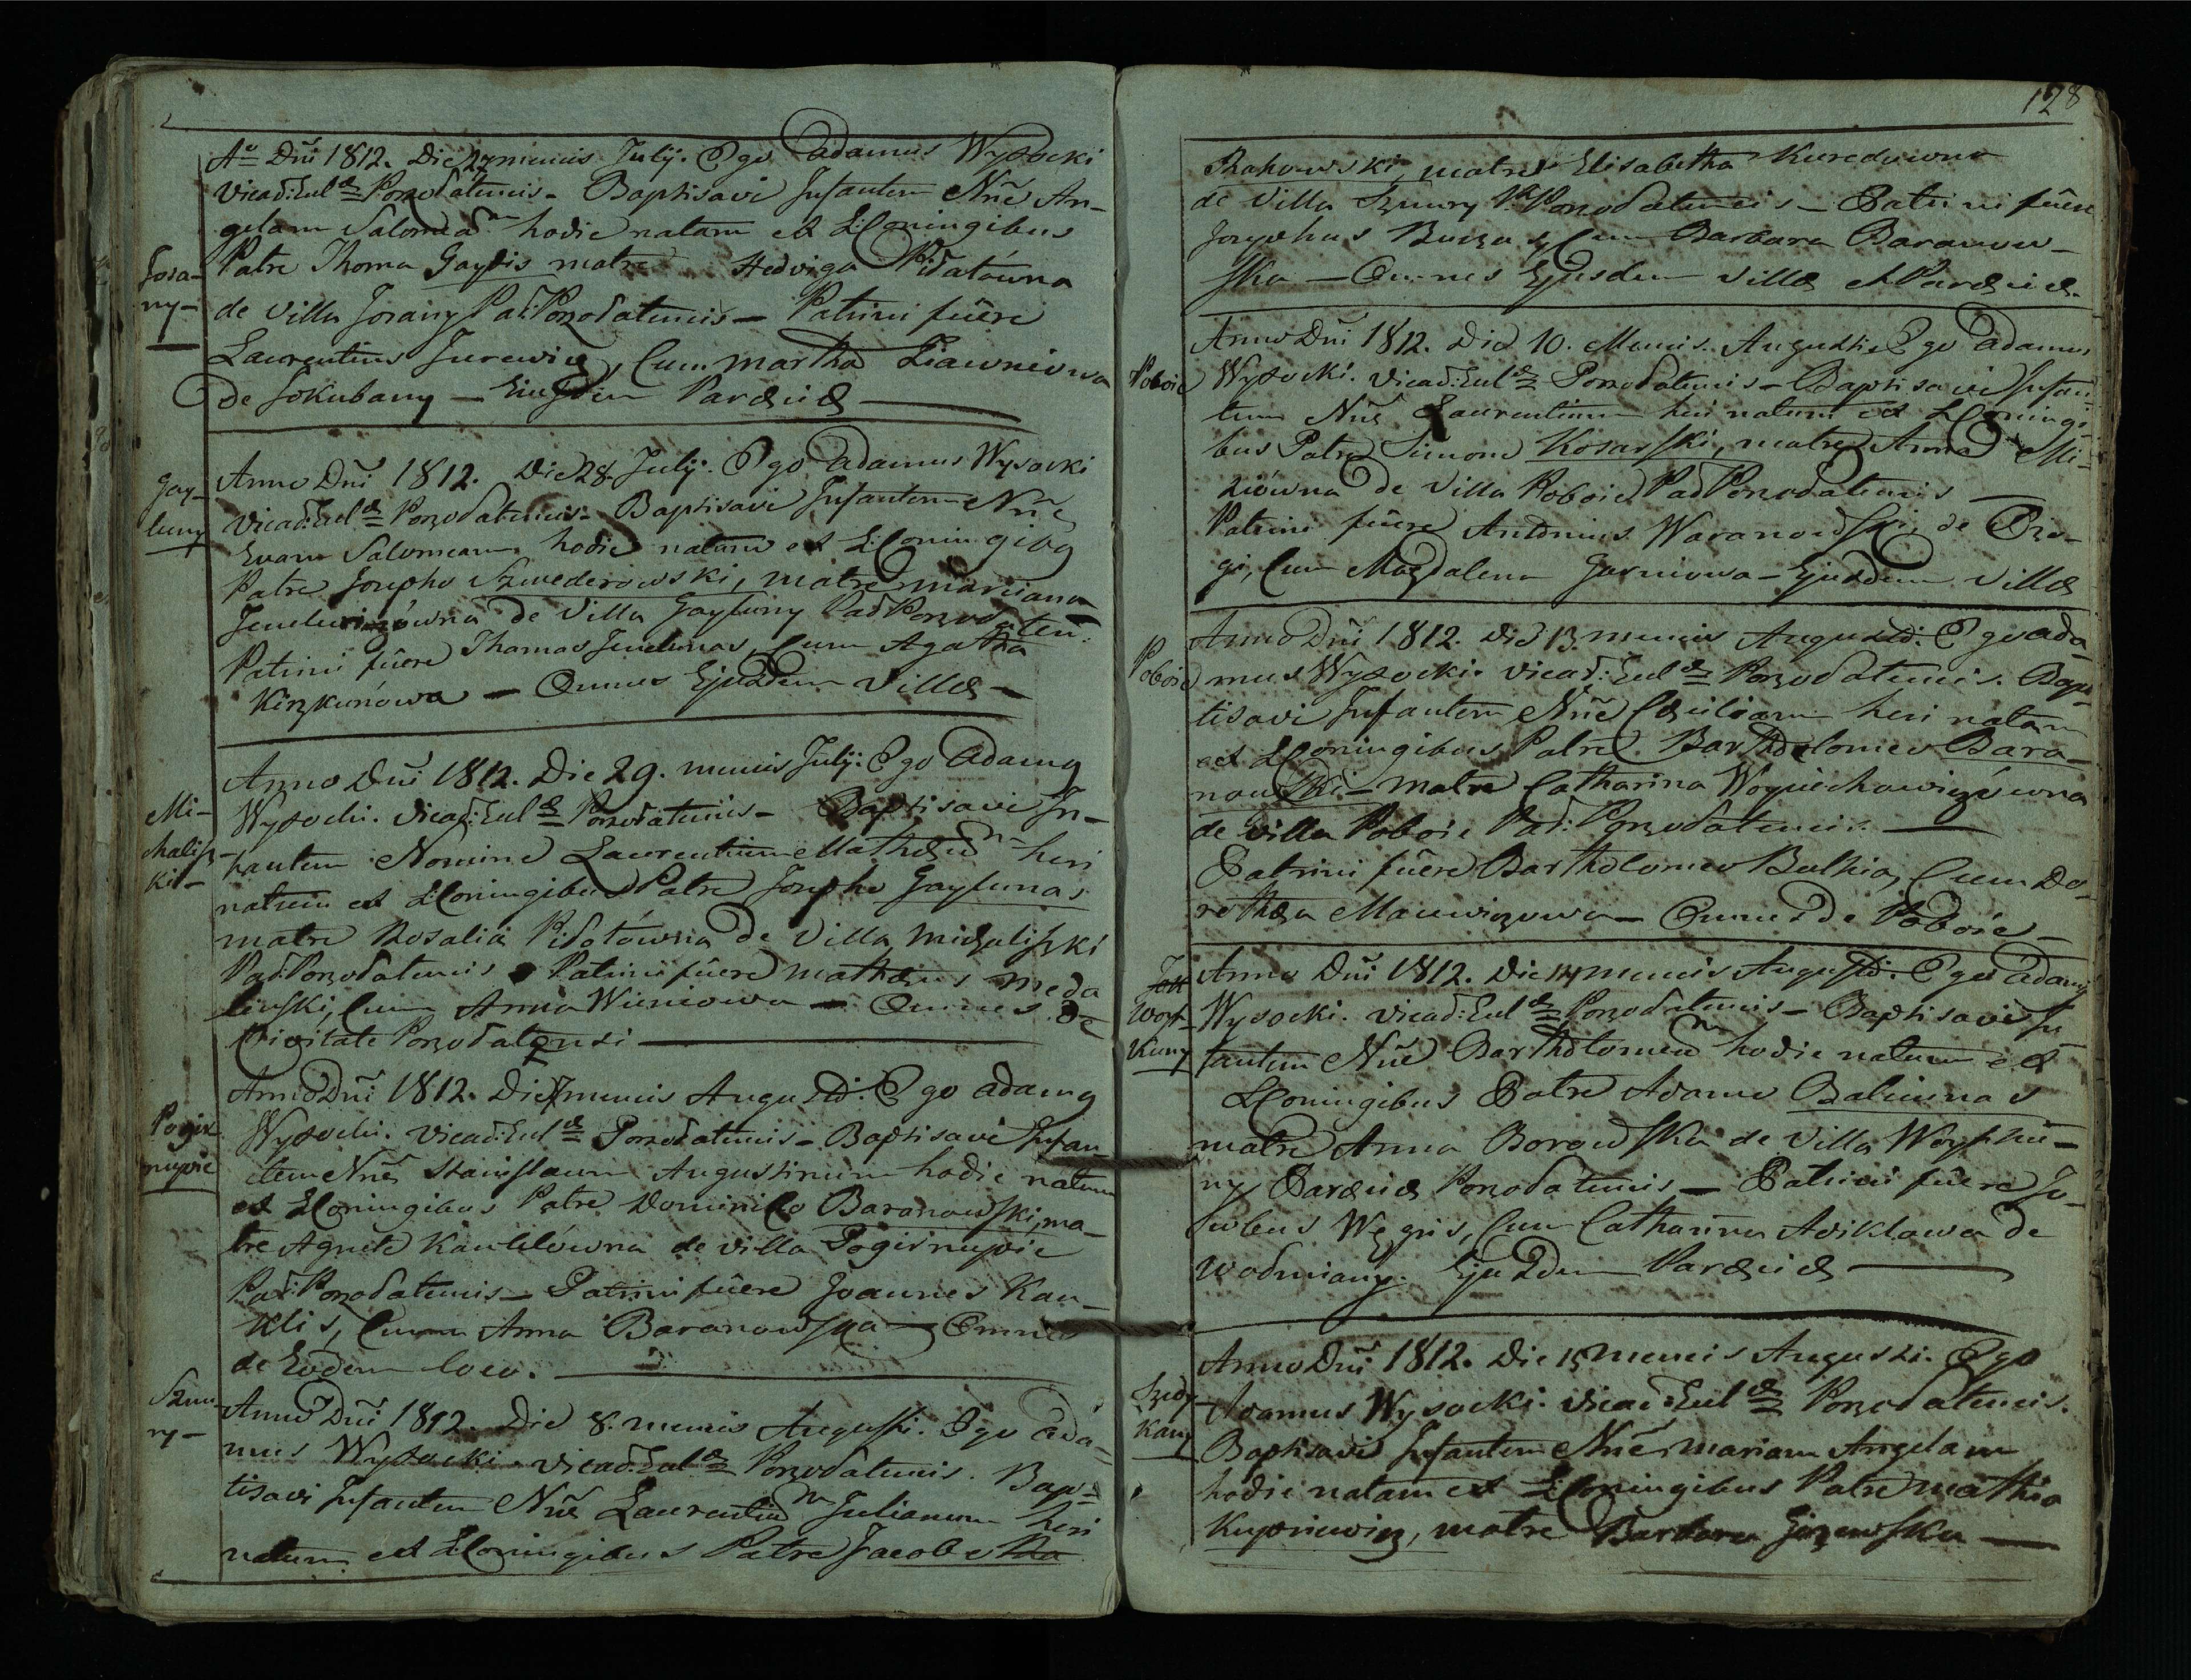 Aō Dni 1812. Die 27 mensis Julij. Ego Adamus Wysocki
Vicad: Eul Pozodatensis - Baptisavi Infantem Nñe An-
gelam Salomeam hodie natam ex LLConiugibus
Josa-
ny-
Patre Thoma Gaydis matre Hedviga Pidatówna
de Villa Josainy Pad: Pozodatensis - Patrini fuêre
Laurentius Jurewicz, Cum Martha Liawniowa
de Jokubany - Eiusdem Paraeciae
Gay-
luny
Anno Dni 1812. Die 28. Julij. Ego Adamus Wysocki
Vicad: Eul Pozodatensis. Baptisavi Infantem Nñe
Evam Salomeam hodie natam ex LLConiugibg
Patre Josepho Szwederowski, matre Marianna
de Villa Gayluny Pad Pozodaten:
Patrini fuêre Thomas Jendunas, Cum Agatha
Kirzkunówa - Omnes Ejusdem Villae -
Mi-
chalisz
ki-
Anno Dni 1812. Die 29. mensis Julij. Ego Adamg
Wysocki. Vicad: Eul Pozodatensis - Baptisavi In-
fantem Nomine Laurentium Mathaeum heri
natum ex LLConiugibus Patre Josepho Gaylunas
matre Rosalia Pidotówna de Villa Michaliszki
Pad: Pozodatensis Patrini fuêre Mathaeus Meda
linski, Cum Anna Wieniowa - Omnes de
Civitate Pozodatensi
Pogir
nupie
Anno Dni 1812. Die 7 mensis Augusti. Ego Adamg
Wysocki. Vicad: Eul Pozodatensis - Baptisavi Infan
tem Nñe Stanislaum Augustinum hodie natum
ex LLConiugibus Patre Dominico Baranowski, ma-
tre Agnete Kauklówna de villa Pogirnupie
Pad: Pozodatensis - Patrini fuêre Joannes Kau-
klis, Cum Anna Baranowska - Omnes
de Eodem loco.
Szuu
ry-
Anno Dni 1812. Die 8. mensis Augusti. Ego Ada-
mus Wysocki. Vicad: Eul Pozodatensis. Bap-
tisavi Infantem Nñe Laurentium Julianum heri
natum ex LLConiugibus Patre Jacobo Ra
128
Rakowski, matre Elisabetha Kuredowna
de Villa Szuury P Pozodatensis - Patrini fuêre
Josephus Cum Barbara Baranow-
ska - Omnes Ejusdem Villae et Paraeciae.
Poboie
Anno Dni 1812. Die 10. Mensis Augusti Ego Adamus
Wysocki. Vicad: Eul Pozodatensis - Baptisavi Infan-
tem Nñe Laurentium heri natum ex LLConiugi-
bus Patre Simone Kosarski, matre Anna Mi-
ziówna de Villa Poboie Pad Pozodatensis
Patrini fuêre Antonius Waranowski de Dro-
gi, Cum Magdalena Gasniowa - Ejusdem Villae
Poboie
Anno Dni 1812. Die 13. mensis Augusti. Ego Ada-
mus Wysocki. Vicad: Eul Pozodatensis. Bap-
tisavi Infantem Nñe Caeciliam heri natam
ex LLConiugibus Patre Bartholomeo Bara-
nowski - Matre Catharina Woyciechowiczówna
de Villa Poboie Pad: Pozodatensis.
Patrini fuêre Bartholomeo Bulhia, Cum Do-
rothaea Mauwiczowa - Omnes de Poboie -
Woysz-
kuny
Anno Dni 1812. Die 14 mensis Augusti. Ego Adamg
Wysocki. Vicad: Eul Pozodatensis - Baptisavi In
fantem Nñe Bartholomeum hodie natum ex
LLConiugibus Patre Adamo Baliunas
matre Anna Borowska de Villa Woyszku-
ny Paraeciae Pozodatensis - Patrini fuêre Ja-
cobus Węgris, Cum Catharina Aviklowa de
Wodmiany. Ejusdem Paraeciae
Szidy
kany
Anno Dni 1812. Die 15 mensis Augusti. Ego
Adamus Wysocki. Vicad: Eul Pozodatensis.
Baptisavi Infantem Nñe Mariam Angelam
hodie natam ex LLConiugibus Patre Mathia
Kupriewicz, matre Barbara Girzewska